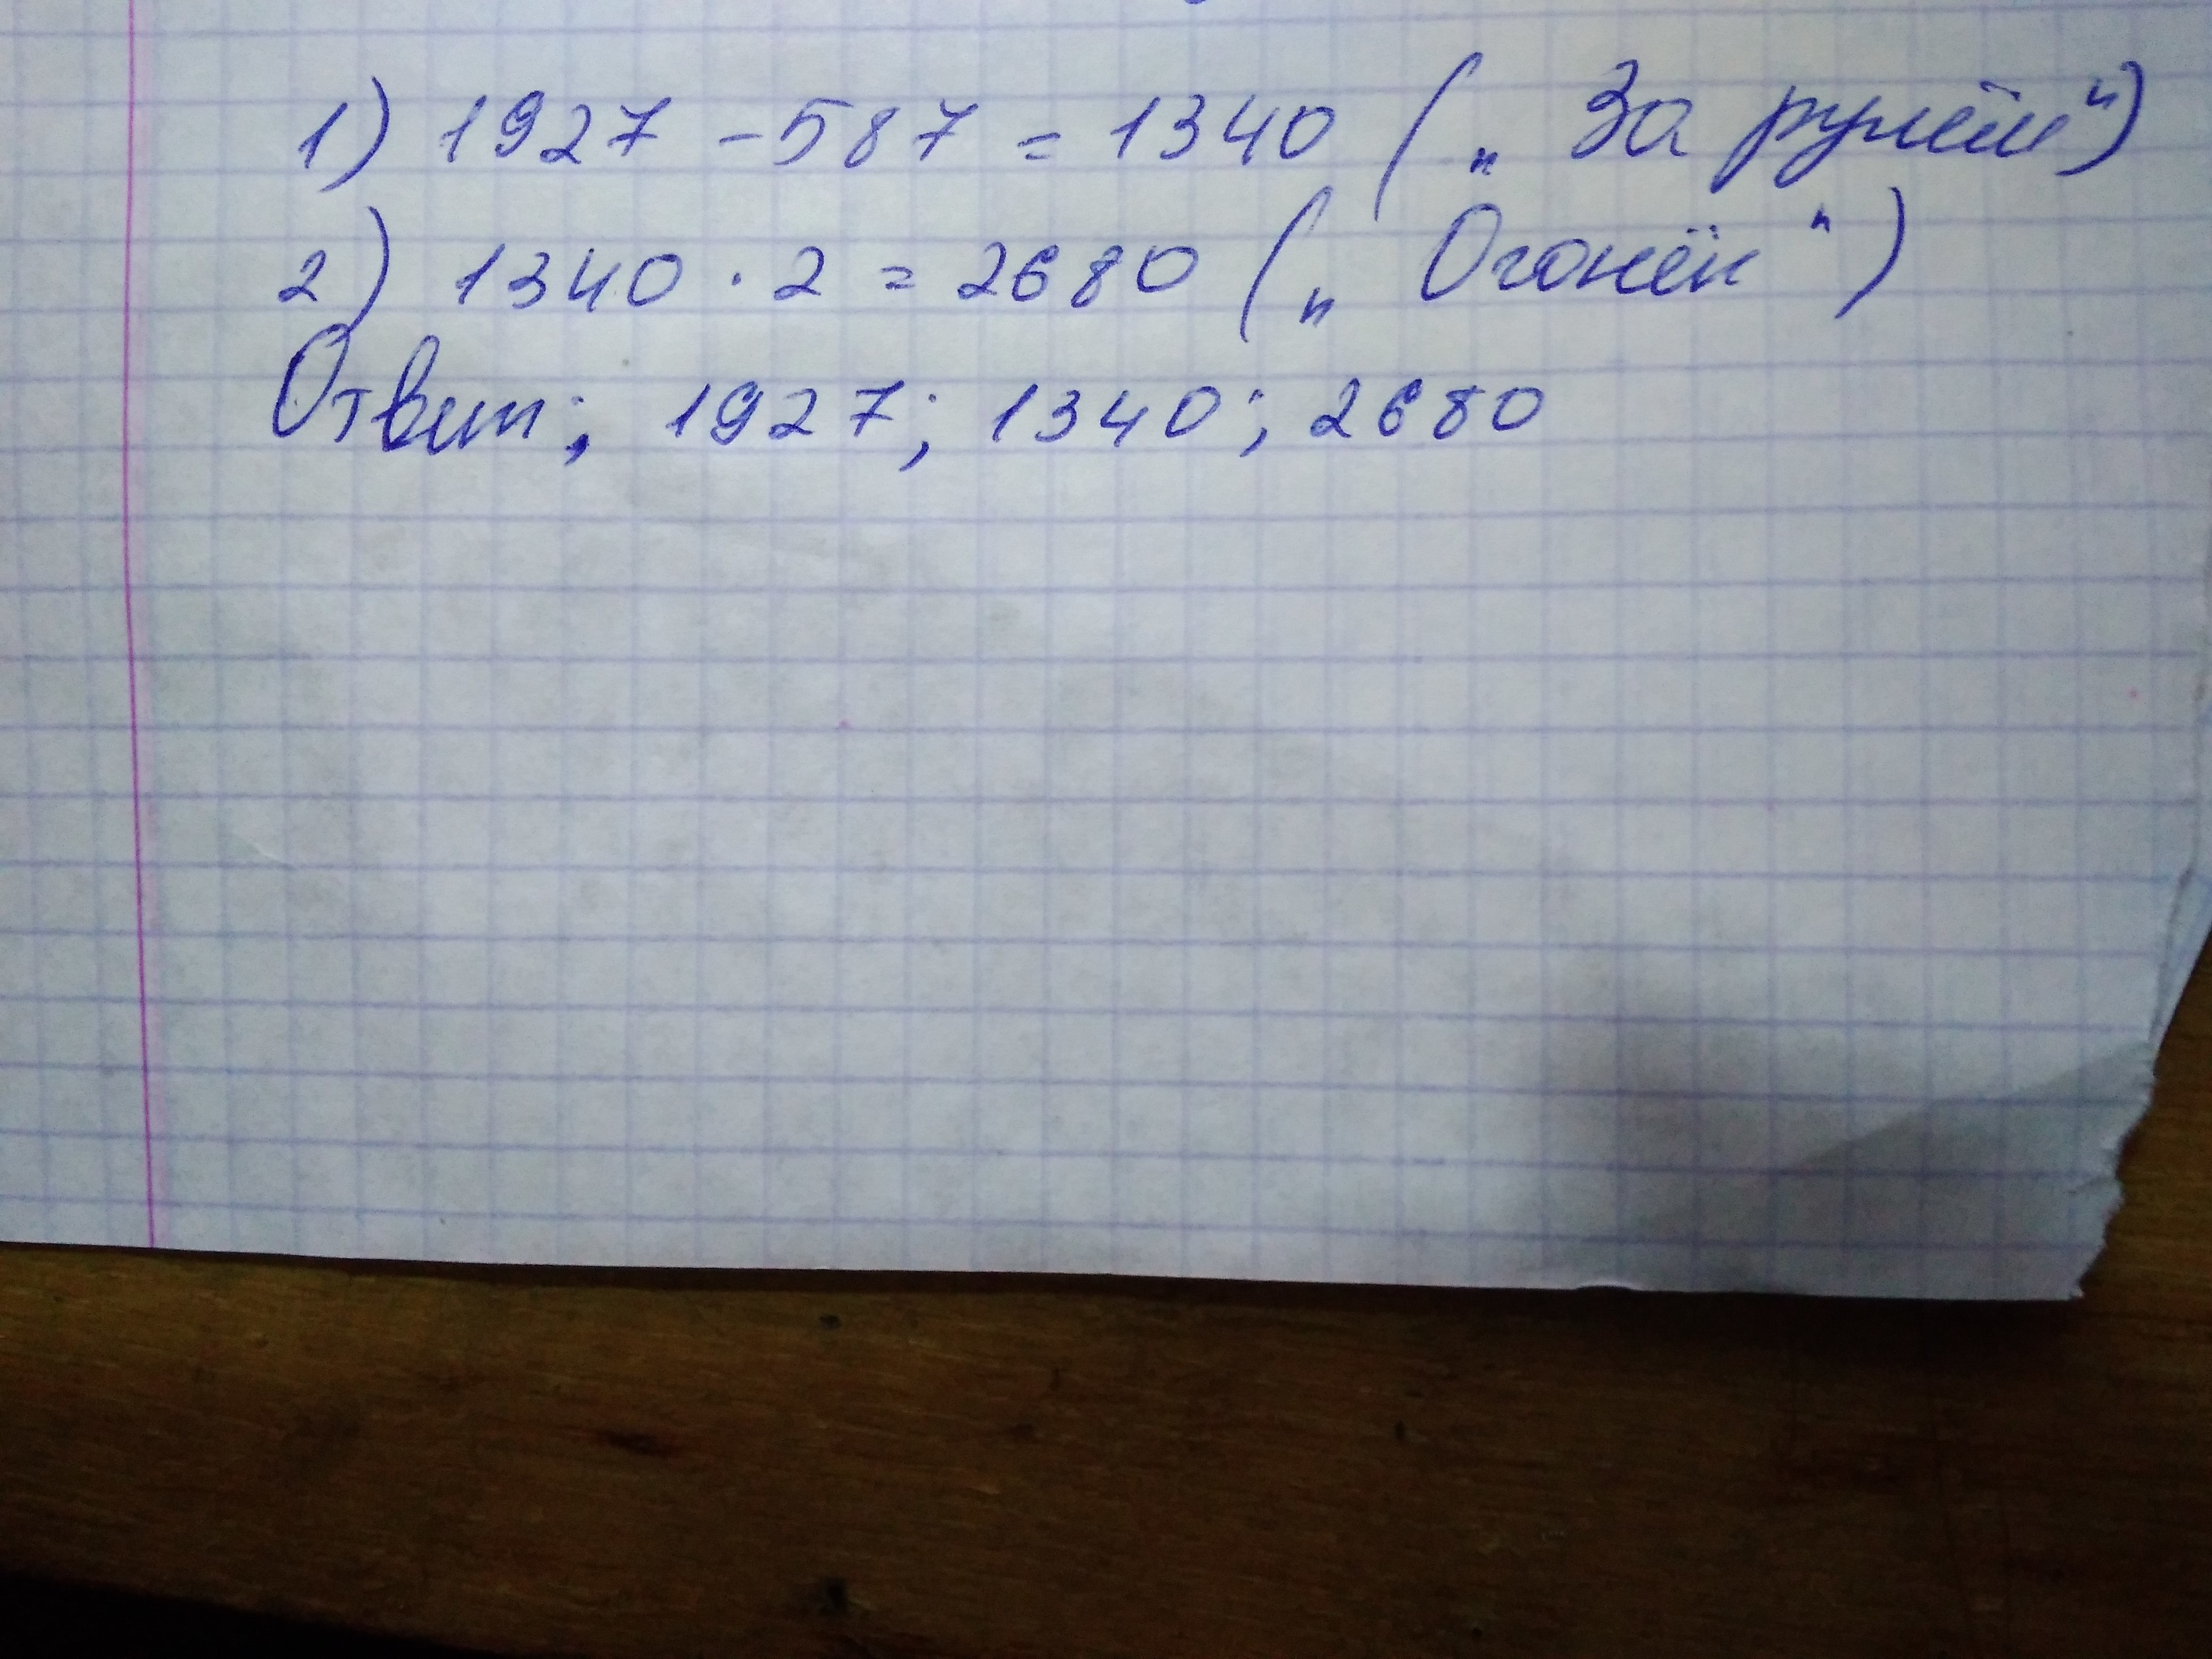 1) 1927 - 587 = 1340 („За рулём")
2) 1340 · 2 = 2680 („Огонёк")
Ответ: 1927; 1340; 2680